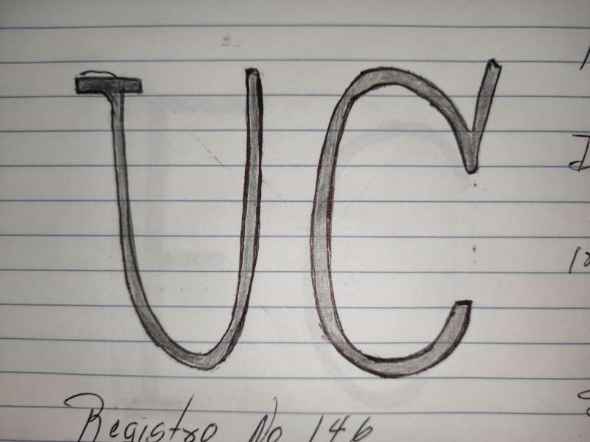 UC
Registro No 146